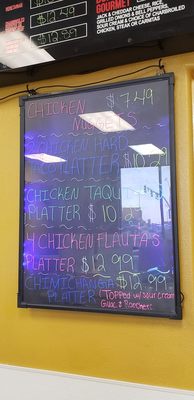 $12
$12
GOURMET
JACK & CHEDDAR CHEESE, RICE
GRILLED ONIONS & BELL PEPPERS,
SOUR CREAM & CHOICE OF CHARBROILED
CHICKEN, STEAK OR CARNITAS
CHICKEN $7.49
NUGGETS
CHICKEN HARD
TACO PLATTER $10.29
CHICKEN TAQUITO
PLATTER $10.2
4 CHICKEN FLAUTA'S
PLATTER $12.99
CHIMICHANGA $12.99
PLATTER "TOPPED w/ sour cream
Guac &